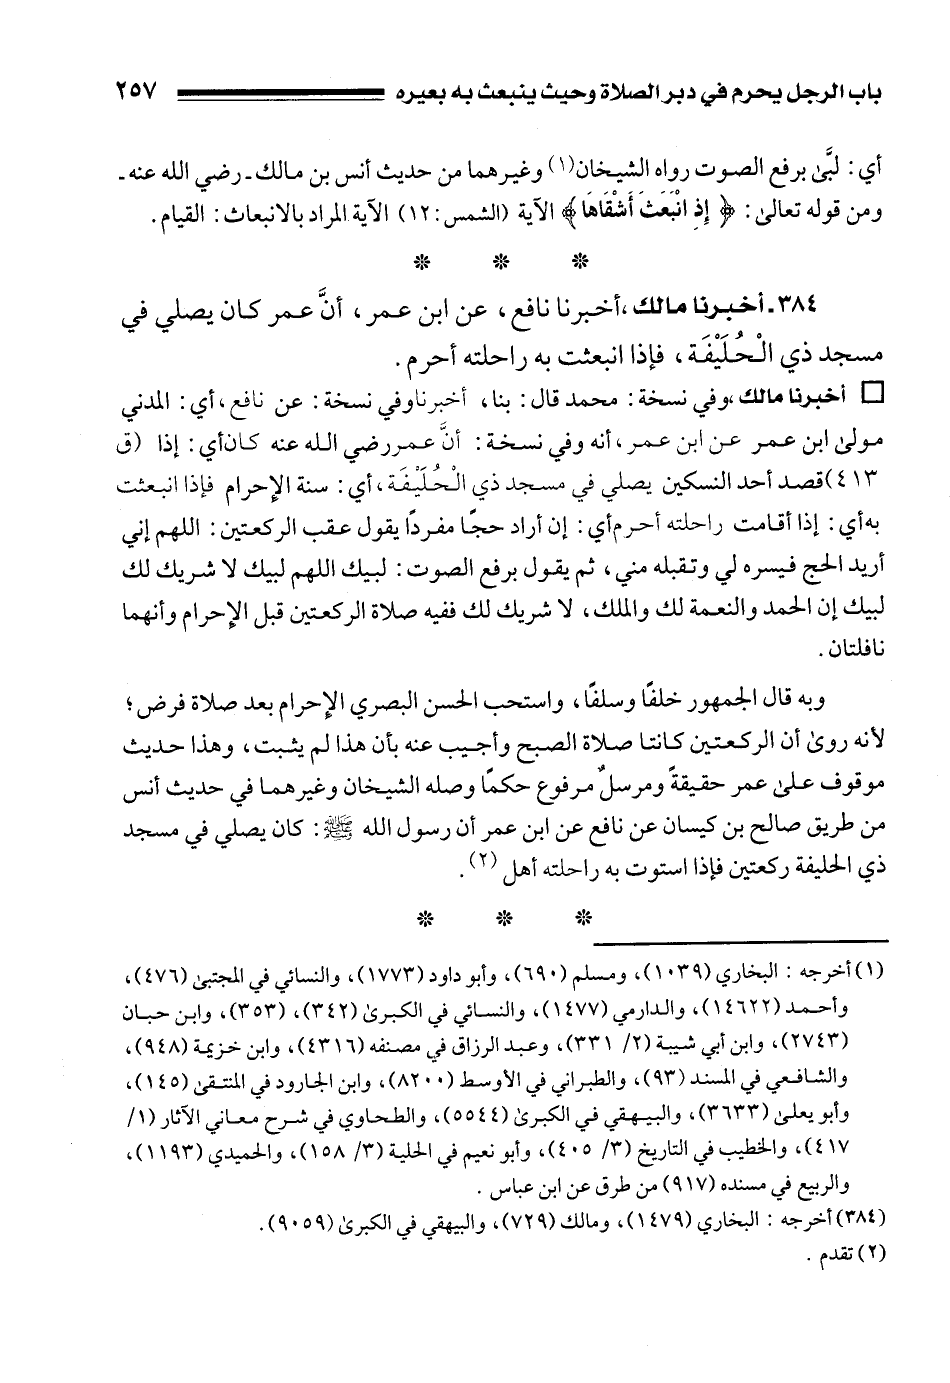 باب الرجل يحرم في دبر الصلاة وحيث ينبعث به بعيره ٢٥٧
أي: لبَّىٰ برفع الصوت رواه الشيخان(١) وغيرهما من حديث أنس بن مالك ـ رضي الله عنه ـ
ومن قوله تعالىٰ: ﴿ إِذِ انْبَعَثَ أَشْقَاهَا﴾ الآية (الشمس: ١٢) الآية المراد بالانبعاث: القيام.
* * *
٣٨٤ـ أخبرنا مالك، أخبرنا نافع، عن ابن عمر، أنَّ عمر كان يصلي في
مسجد ذي الْحُلَيْفَة، فإذا انبعثت به راحلته أحرم.
□ أخبرنا مالك، وفي نسخة: محمد قال: بنا، أخبرنا وفي نسخة: عن نافع، أي: المدني
مولىٰ ابن عمر عن ابن عمر، أنه وفي نسخة: أنَّ عمر رضي الله عنه كان أي: إذا (ق
٤١٣) قصد أحد النسكين يصلي في مسجد ذي الْحُلَيْفَة، أي: سنة الإحرام فإذا انبعثت
به أي: إذا أقامت راحلته أحرم أي: إن أراد حجًا مفردًا يقول عقب الركعتين: اللهم إني
أريد الحج فيسره لي وتقبله مني، ثم يقول برفع الصوت: لبيك اللهم لبيك لا شريك لك
لبيك إن الحمد والنعمة لك والملك، لا شريك لك ففيه صلاة الركعتين قبل الإحرام وأنهما
نافلتان.
وبه قال الجمهور خلفًا وسلفًا، واستحب الحسن البصري الإحرام بعد صلاة فرض؛
لأنه روىٰ أن الركعتين كانتا صلاة الصبح وأجيب عنه بأن هذا لم يثبت، وهذا حديث
موقوف علىٰ عمر حقيقةً ومرسلٌ مرفوع حكمًا وصله الشيخان وغيرهما في حديث أنس
من طريق صالح بن كيسان عن نافع عن ابن عمر أن رسول الله ﷺ: كان يصلي في مسجد
ذي الحليفة ركعتين فإذا استوت به راحلته أهل (٢).
* * *
(١) أخرجه: البخاري (١٠٣٩)، ومسلم (٦٩٠)، وأبو داود (١٧٧٣)، والنسائي في المجتبىٰ (٤٧٦)،
وأحمد (١٤٦٢٢)، والدارمي (١٤٧٧)، والنسائي في الكبرىٰ (٣٤٢)، (٣٥٣)، وابن حبان
(٢٧٤٣)، وابن أبي شيبة (٢/ ٣٣١)، وعبد الرزاق في مصنفه (٤٣١٦)، وابن خزيمة (٩٤٨)،
والشافعي في المسند (٩٣)، والطبراني في الأوسط (٨٢٠٠)، وابن الجارود في المنتقىٰ (١٤٥)،
وأبو يعلىٰ (٣٦٣٣)، والبيهقي في الكبرىٰ (٥٥٤٤)، والطحاوي في شرح معاني الآثار (١/
٤١٧)، والخطيب في التاريخ (٣/ ٤٠٥)، وأبو نعيم في الحلية (٣/ ١٥٨)، والحميدي (١١٩٣)،
والربيع في مسنده (٩١٧) من طرق عن ابن عباس.
(٣٨٤) أخرجه: البخاري (١٤٧٩)، ومالك (٧٢٩)، والبيهقي في الكبرىٰ (٩٠٥٩).
(٢) تقدم.